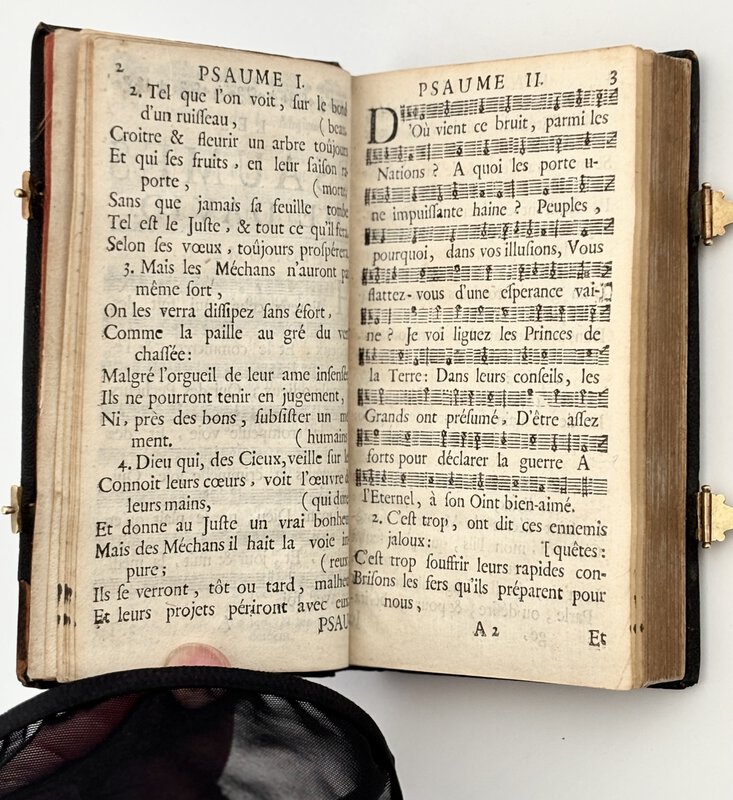 2 PSAUME I.
2. Tel que l'on voit, ſur le bord
d'un ruiſſeau, (beau,
Croitre & fleurir un arbre toûjours
Et qui ſes fruits, en leur ſaiſon
porte, (morte,
Sans que jamais ſa feuille tombe
Tel eſt le Juſte, & tout ce qu'il fera
Selon ſes vœux, toûjours proſpérera
3. Mais les Méchans n'auront pa
même ſort,
On les verra diſſipez ſans éfort,
Comme la paille au gré du ven
chaſſée:
Malgré l'orgueil de leur ame inſenſée
Ils ne pourront tenir en jugement,
Ni, près des bons, ſubſiſter un mo
ment. (humains
4. Dieu qui, des Cieux, veille ſur le
Connoit leurs cœurs, voit l'œuvre d
leurs mains, (qui dure
Et donne au Juſte un vrai bonheur
Mais des Méchans il hait la voie im
pure; (reux
Ils ſe verront, tôt ou tard, malheu
Et leurs projets périront avec eux.
PSAU
PSAUME II. 3
D'Où vient ce bruit, parmi les
Nations ? A quoi les porte u-
ne impuiſſante haine ? Peuples,
pourquoi, dans vos illuſions, Vous
flattez-vous d'une eſperance vai-
ne ? Je voi liguez les Princes de
la Terre: Dans leurs conſeils, les
Grands ont préſumé, D'être aſſez
forts pour déclarer la guerre A
l'Eternel, à ſon Oint bien-aimé.
2. C'eſt trop, ont dit ces ennemis
jaloux: [quêtes:
C'eſt trop ſouffrir leurs rapides con-
Briſons les fers qu'ils préparent pour
nous,
A 2 Et